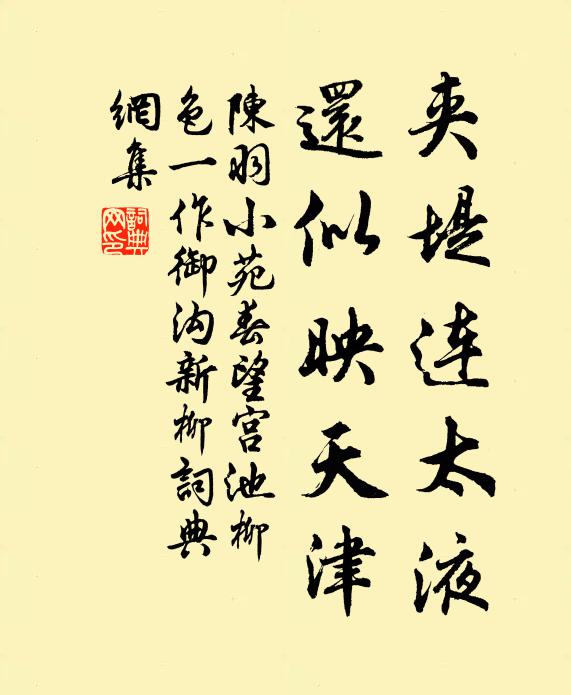 夹堤連太液
還似映天津
陳羽小苑春望宮池柳
色一作御沟新柳詞典
網集
詞典
网印